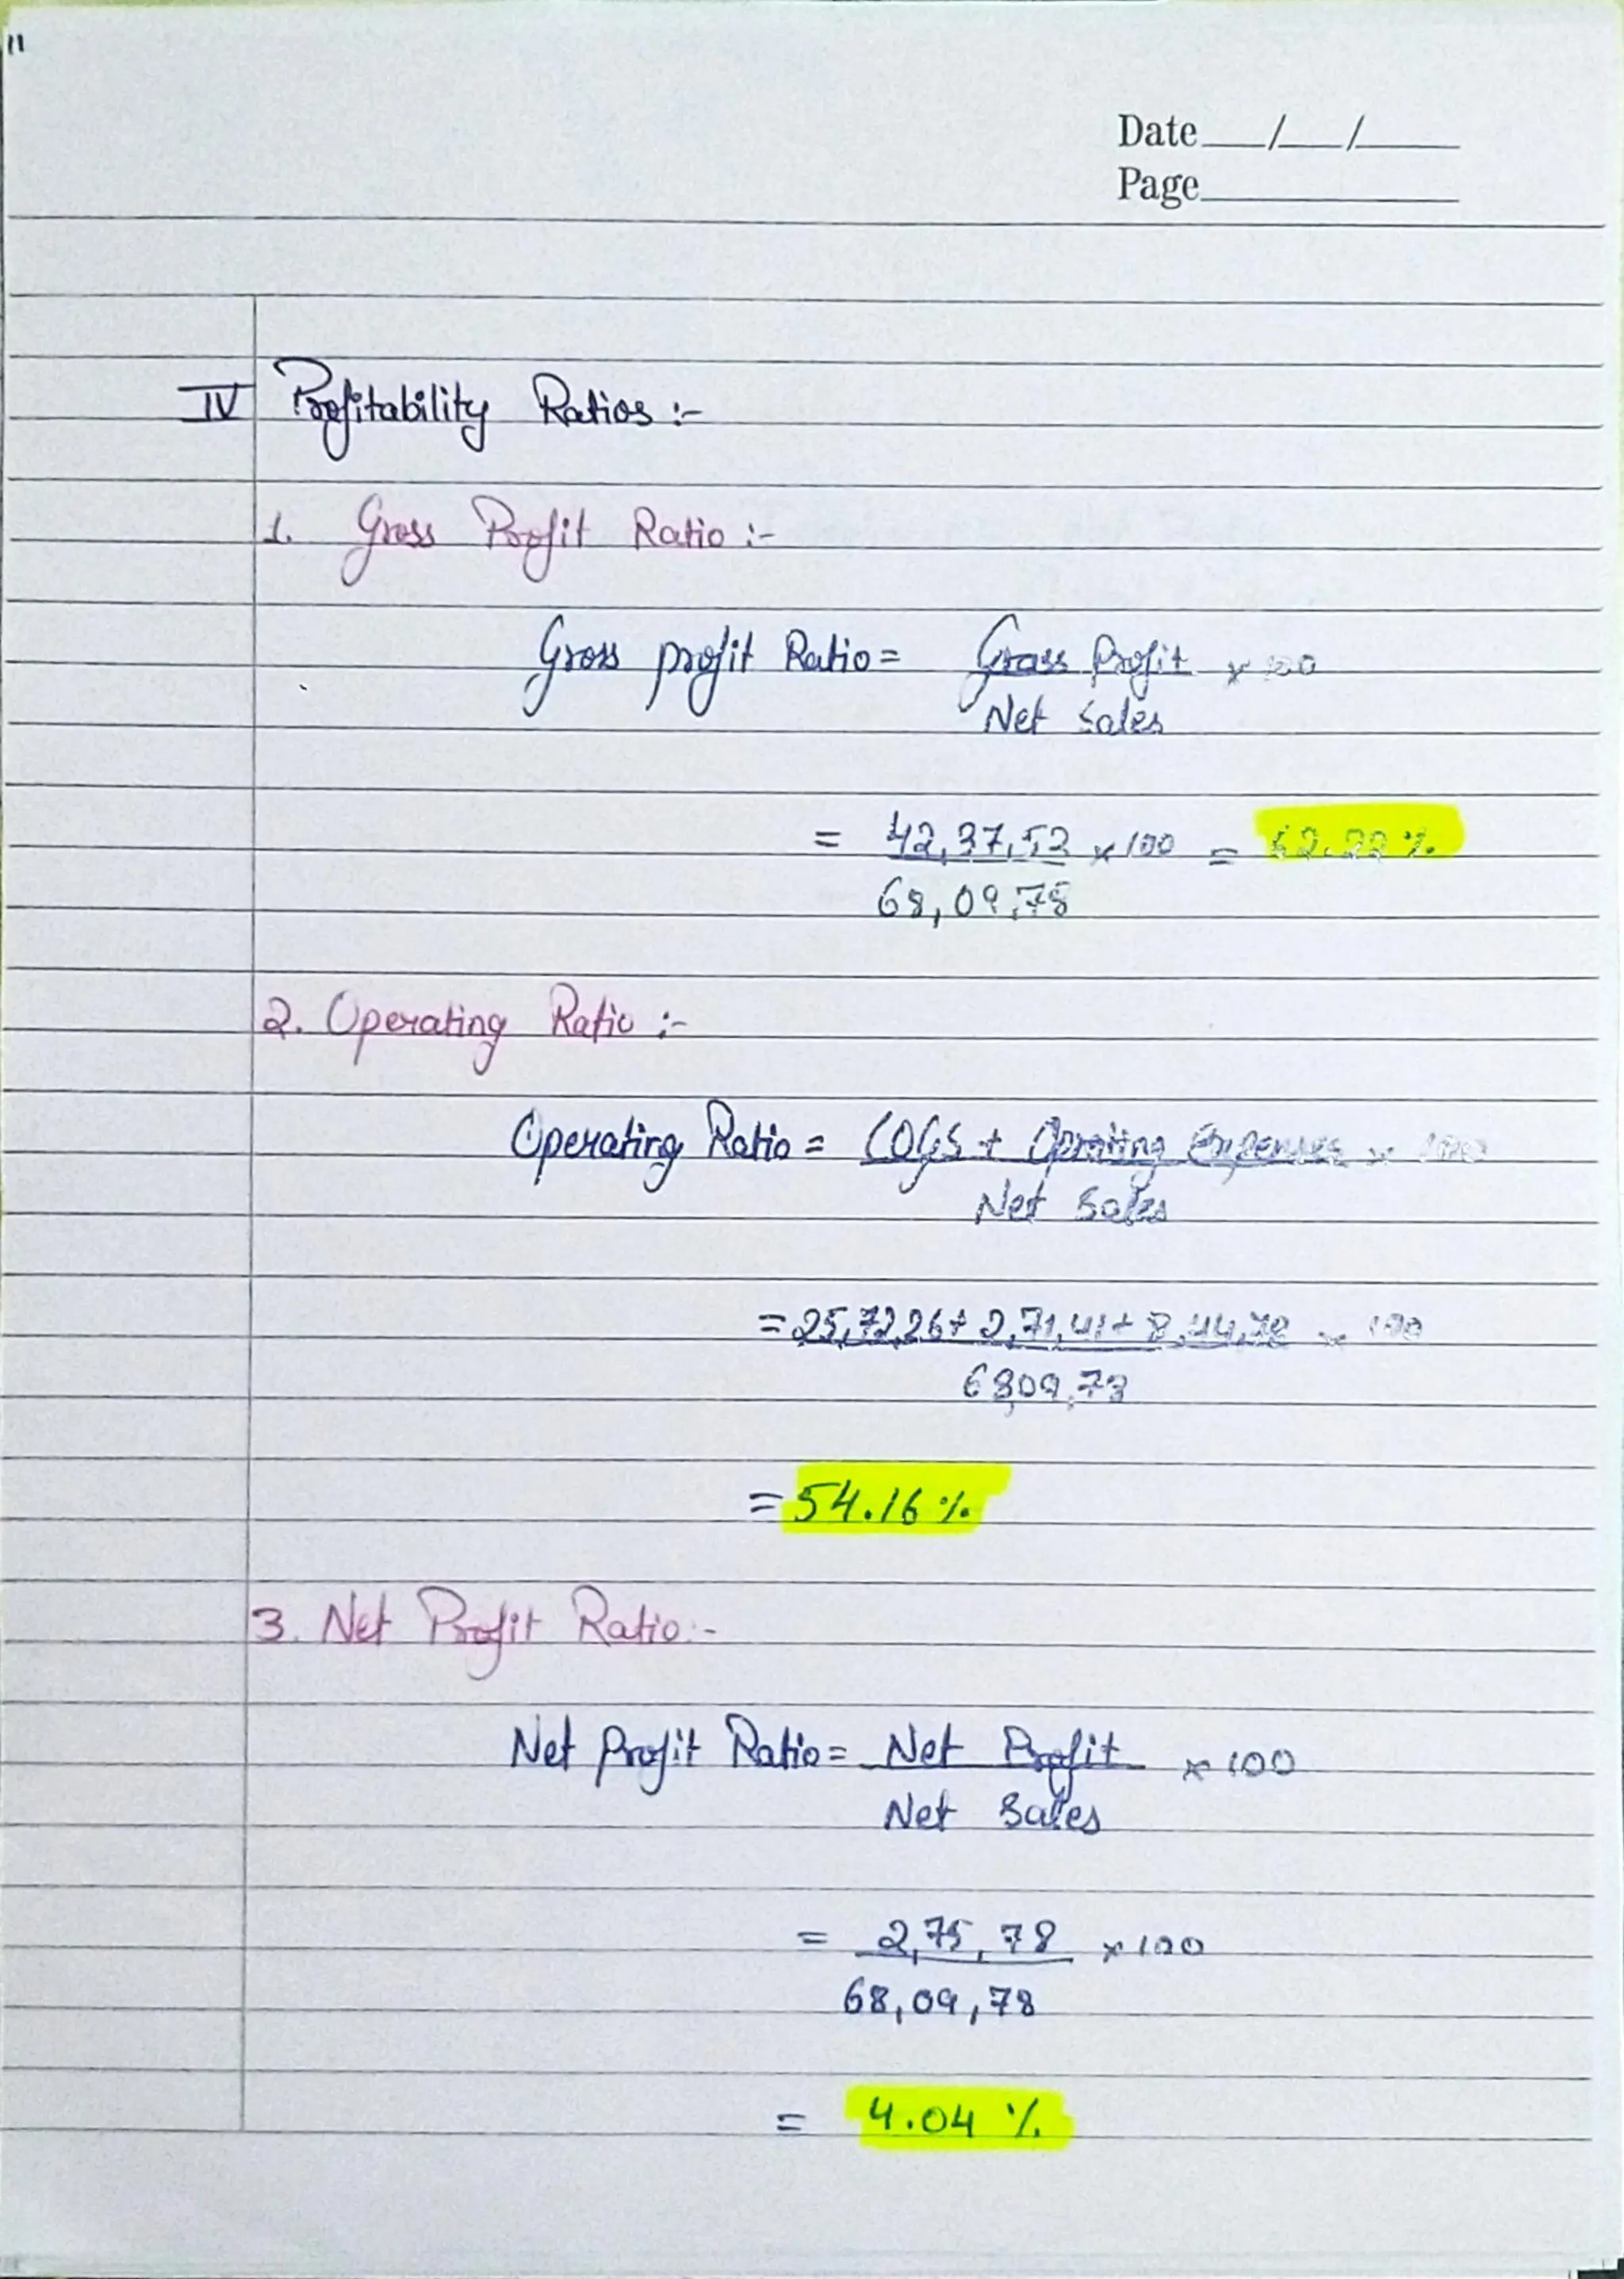 11
Date___/___/_____
Page____________
IV Profitability Ratios :-
1. Gross Profit Ratio :-
Gross profit Ratio = Gross Profit × 100
Net Sales
= 42,37,52 × 100 = 62.22 %
68,09,78
2. Operating Ratio :-
Operating Ratio = COGS + Operating Expenses × 100
Net Sales
= 25,72,26 + 2,71,41 + 8,44,72 × 100
6809,78
= 54.16 %
3. Net Profit Ratio :-
Net Profit Ratio = Net Profit × 100
Net Sales
= 2,75,78 × 100
68,09,78
= 4.04 %